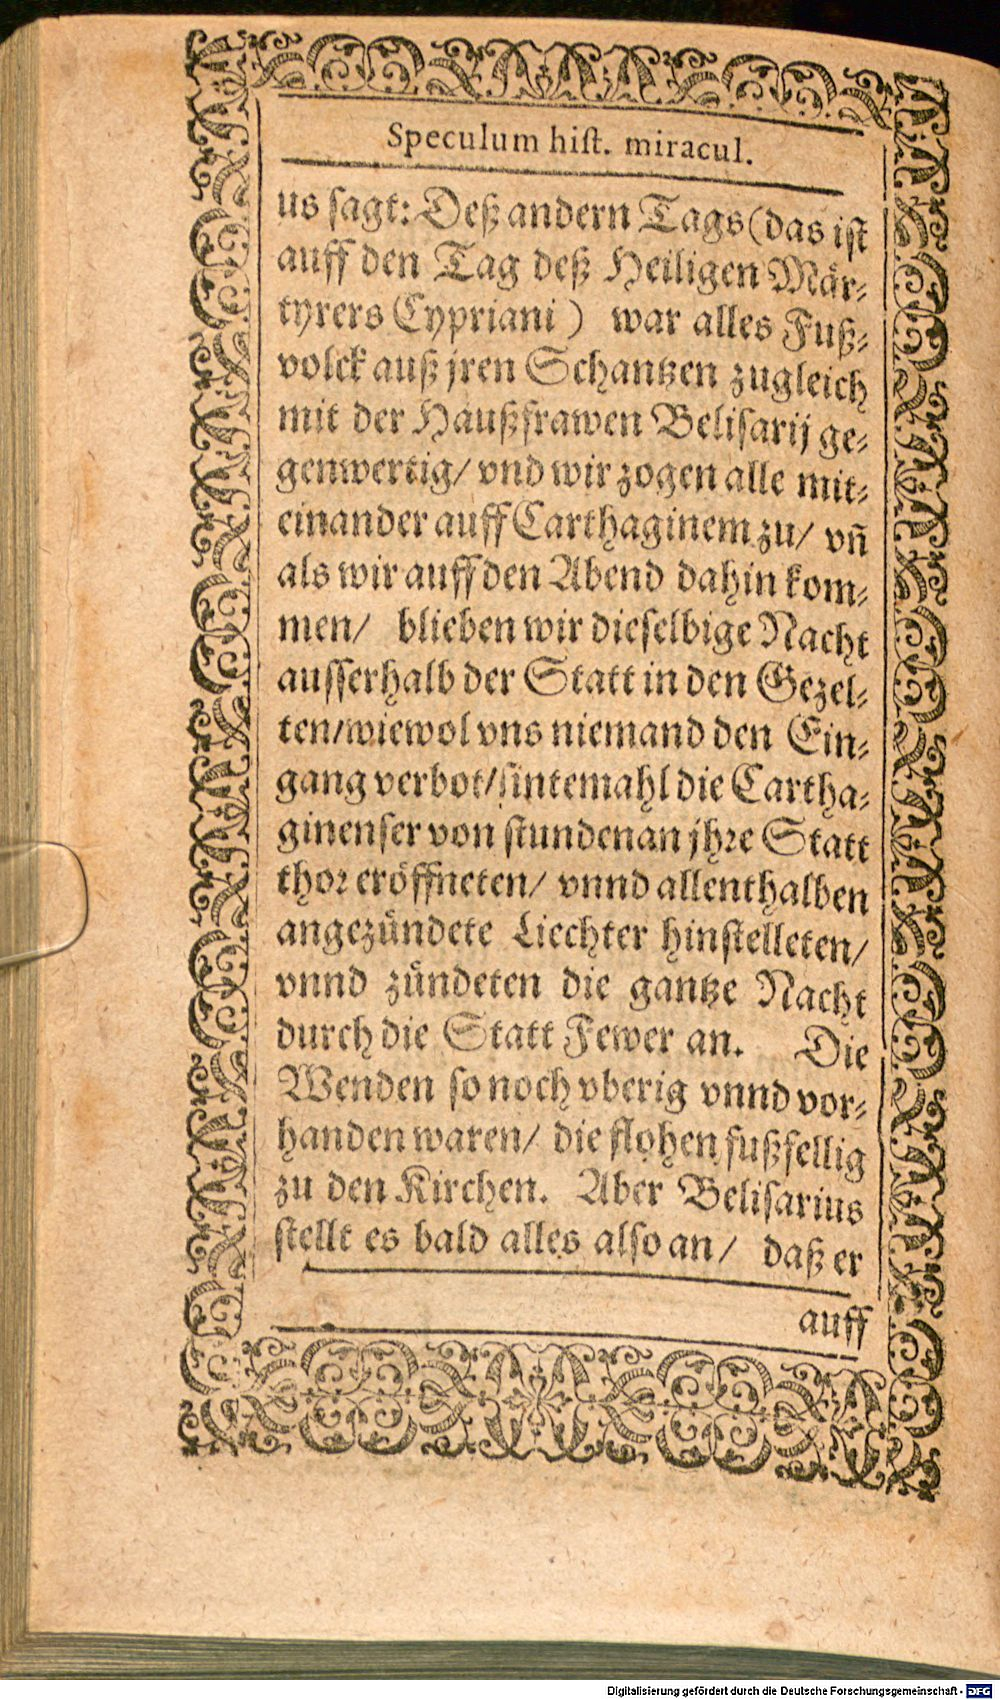 Speculum hiſt. miracul.
us ſagt: Deß andern Tags (das iſt
auff den Tag deß Heiligen Mär-
tyrers Cypriani) war alles Fuß-
volck auß jren Schantzen zugleich
mit der Haußfrawen Beliſarij ge-
genwertig/ vnd wir zogen alle mit-
einander auff Carthaginem zu/ vñ
als wir auff den Abend dahin kom-
men/ blieben wir dieſelbige Nacht
auſſerhalb der Statt in den Gezel-
ten/ wiewol vns niemand den Ein-
gang verbot/ ſintemahl die Cartha-
ginenſer von ſtunden an jhꝛe Statt
thoꝛ eröffneten/ vnnd allenthalben
angezündete Liechter hinſtelleten/
vnnd zündeten die gantze Nacht
durch die Statt Fewer an. Die
Wenden ſo noch vberig vnnd vor-
handen waren/ die flohen fußfellig
zu den Kirchen. Aber Beliſarius
ſtellt es bald alles alſo an/ daß er
auff
Digitalisierung gefördert durch die Deutsche Forschungsgemeinschaft - DFG